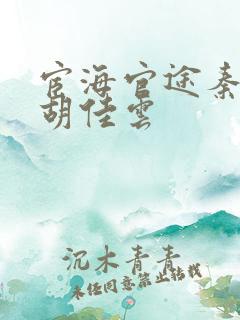 宦海官途秦
胡佳雲
沉木青青
未经同意禁止转载